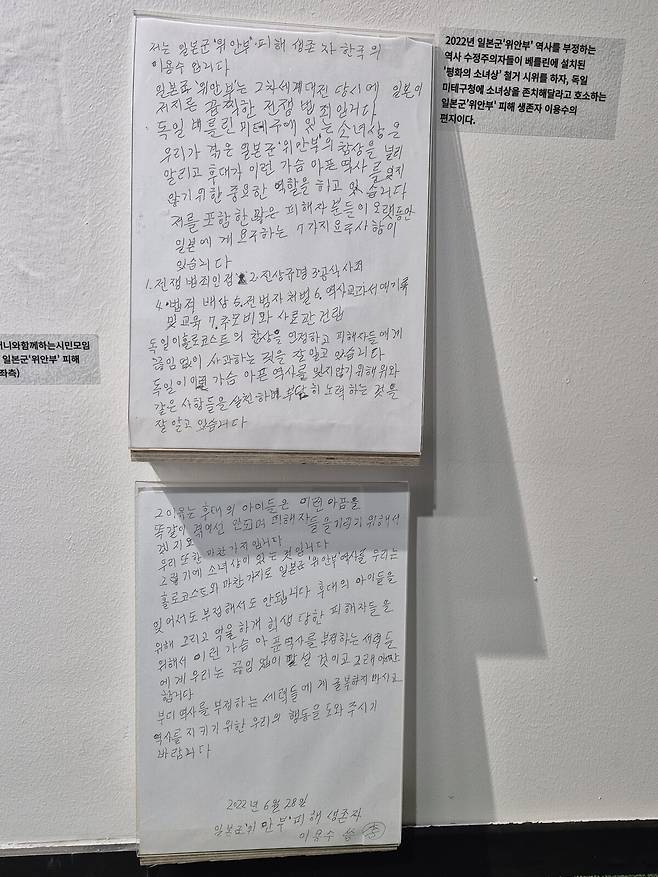 저는 일본군'위안부' 피해 생존자 한국의
이용수 입니다
일본군'위안부'는 2차세계대전 당시에 일본이
저지른 끔찍한 전쟁 범죄입니다
독일 베를린 미테구에 있는 소녀상은
우리가 겪은 일본군'위안부'의 참상을 널리
알리고 후대가 이런 가슴 아픈 역사를 잊지
않기위한 중요한 역할을 하고 있습니다
저를 포함한 많은 피해자분들이 오랫동안
일본에게 요구하는 7가지 요구사항이
있습니다
1. 전쟁범죄인정 2. 진상규명 3. 공식사죄
4. 법적 배상 5. 전범자 처벌 6. 역사교과서에 기록
및 교육 7. 추모비와 사료관 건립
독일이 홀로코스트의 참상을 인정하고 피해자들에게
끊임없이 사과하는 것을 잘 알고 있습니다
독일이 이런 가슴 아픈 역사를 잊지않기 위해 위와
같은 사항들을 실천하며 부단히 노력하는 것을
잘 알고 있습니다
그 이유는 후대의 아이들은 이런 아픔을
똑같이 겪어선 안되며 피해자들을 기리기 위해서
겠지요
우리 또한 마찬가지 입니다
그렇기에 소녀상이 있는 것입니다
홀로코스트와 마찬가지로 일본군'위안부'역사를 우리는
잊어서도 부정해서도 안됩니다 후대의 아이들을
위해 그리고 억울하게 희생 당한 피해자들을
위해서 이런 가슴 아픈 역사를 부정하는 세력들
에게 우리는 끊임없이 맞설 것이고 그래야만
합니다
부디 역사를 부정하는 세력들에게 굴복하지 마시고
역사를 지키기 위한 우리의 행동을 도와 주시기
바랍니다
2022년 6월 28일
일본군'위안부' 피해 생존자
이용수 李
2022년 일본군'위안부' 역사를 부정하는
역사 수정주의자들이 베를린에 설치된
'평화의 소녀상' 철거 시위를 하자, 독일
미테구청에 소녀상을 존치해달라고 호소하는
일본군'위안부' 피해 생존자 이용수의
편지이다.
머니와함께하는시민모임
일본군'위안부' 피해
좌측)